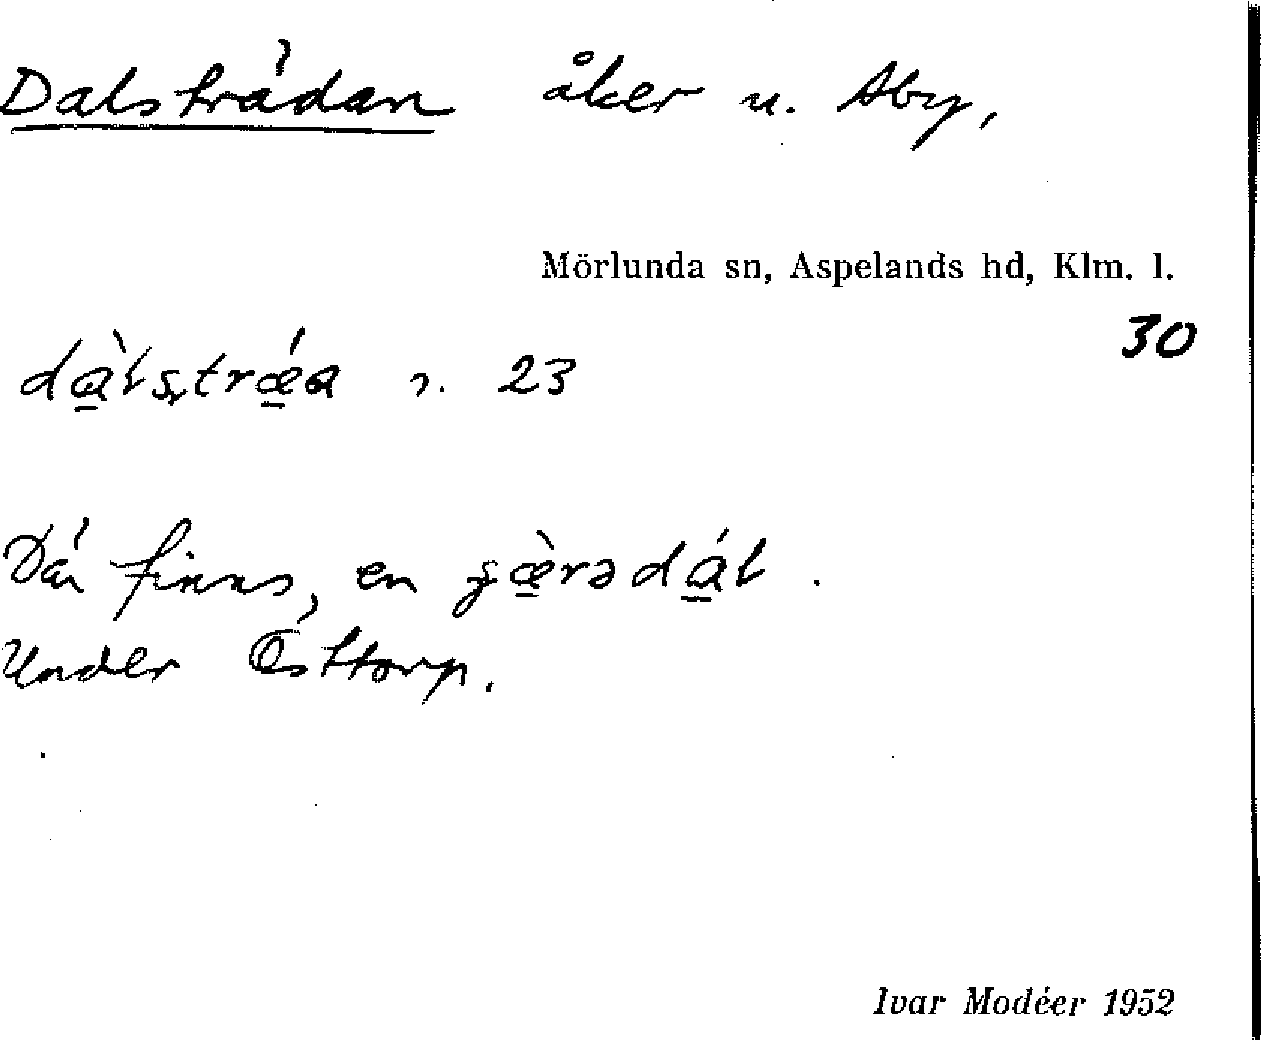 Dalsträdan åker u. Åby,
Mörlunda sn, Aspelands hd, Klm. l.
30
dàlstrǽa r. 23
Där finns en gæ̀rədál.
Under Östtorp.
Ivar Modéer 1952